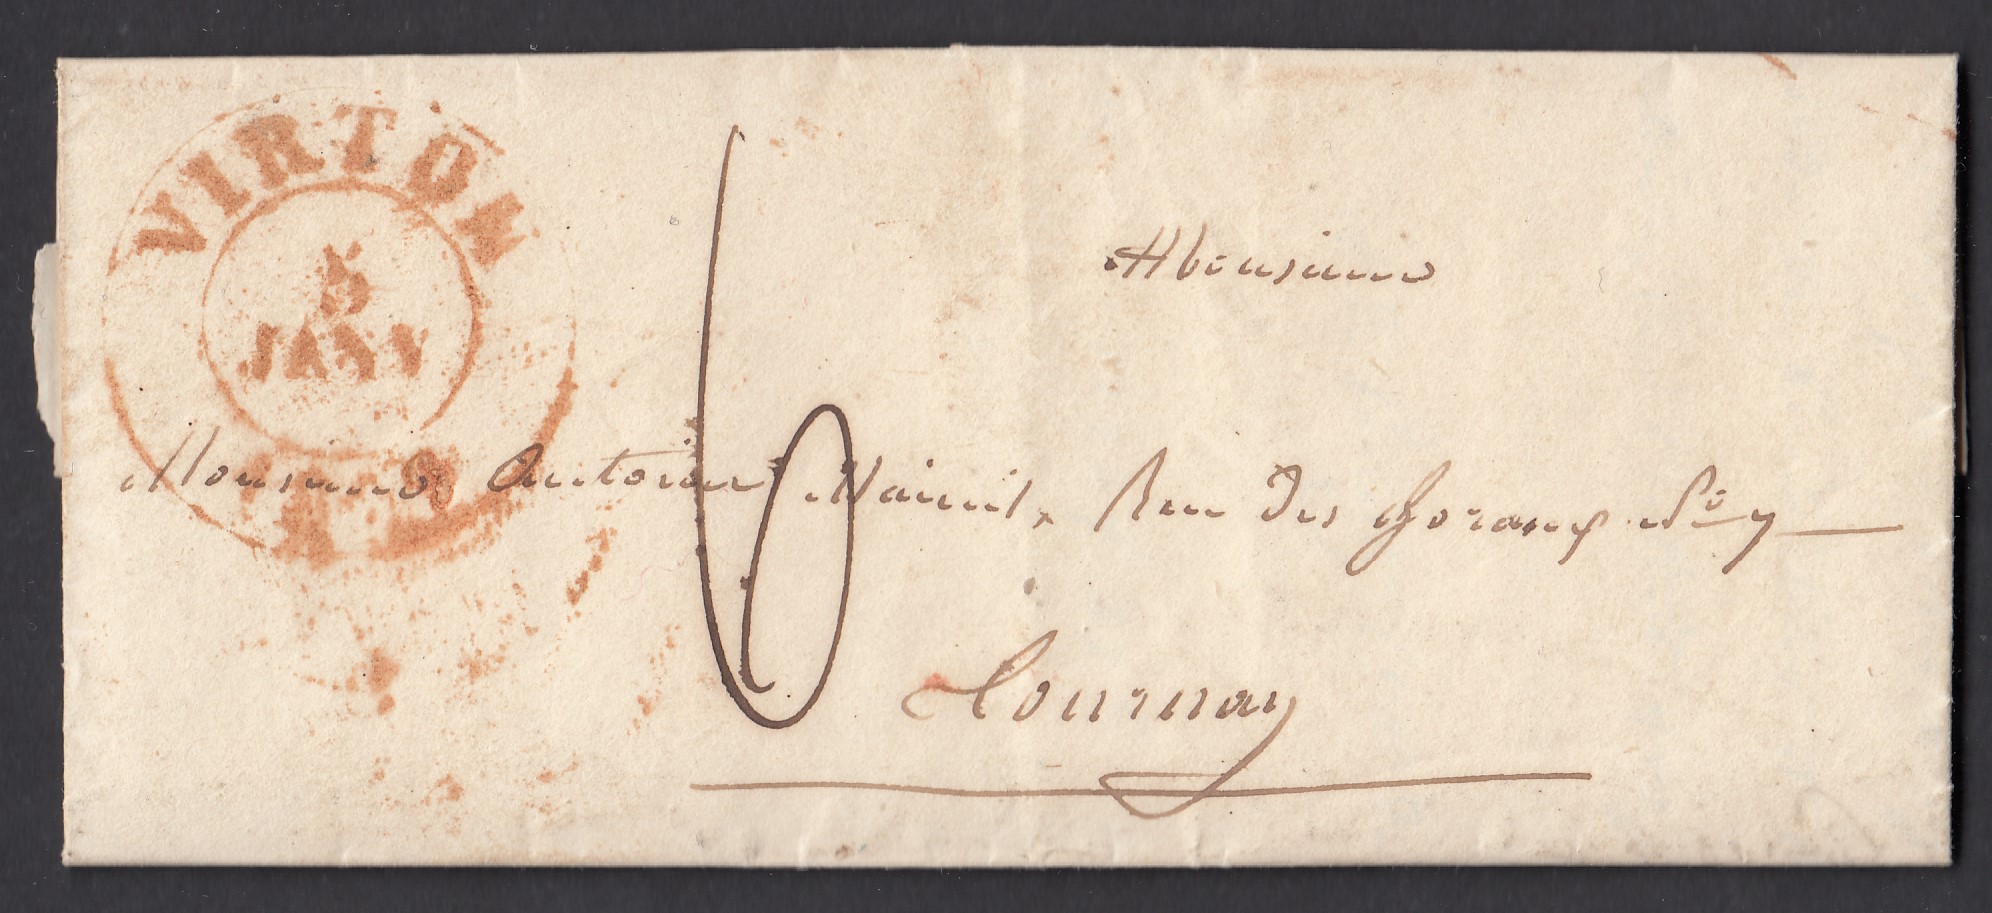 VIRTON
5
JANV
6
Monsieur
Monsieur Antoine Rue des N° 7
Tournay